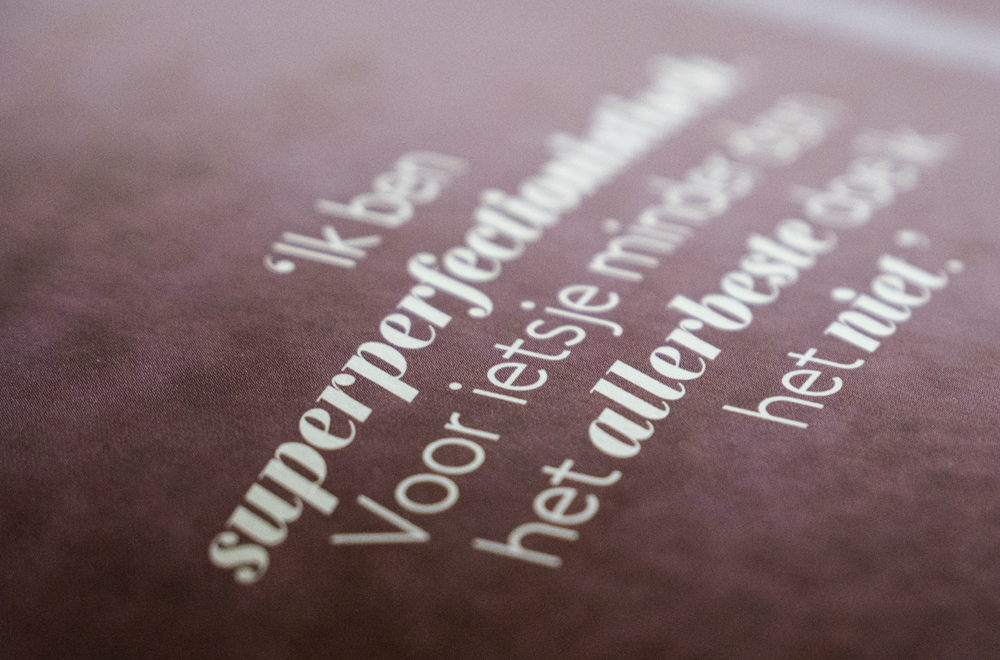 ‘Ik ben
superperfectionistisch
Voor ietsje minder dan
het allerbeste doe ik
het niet.’